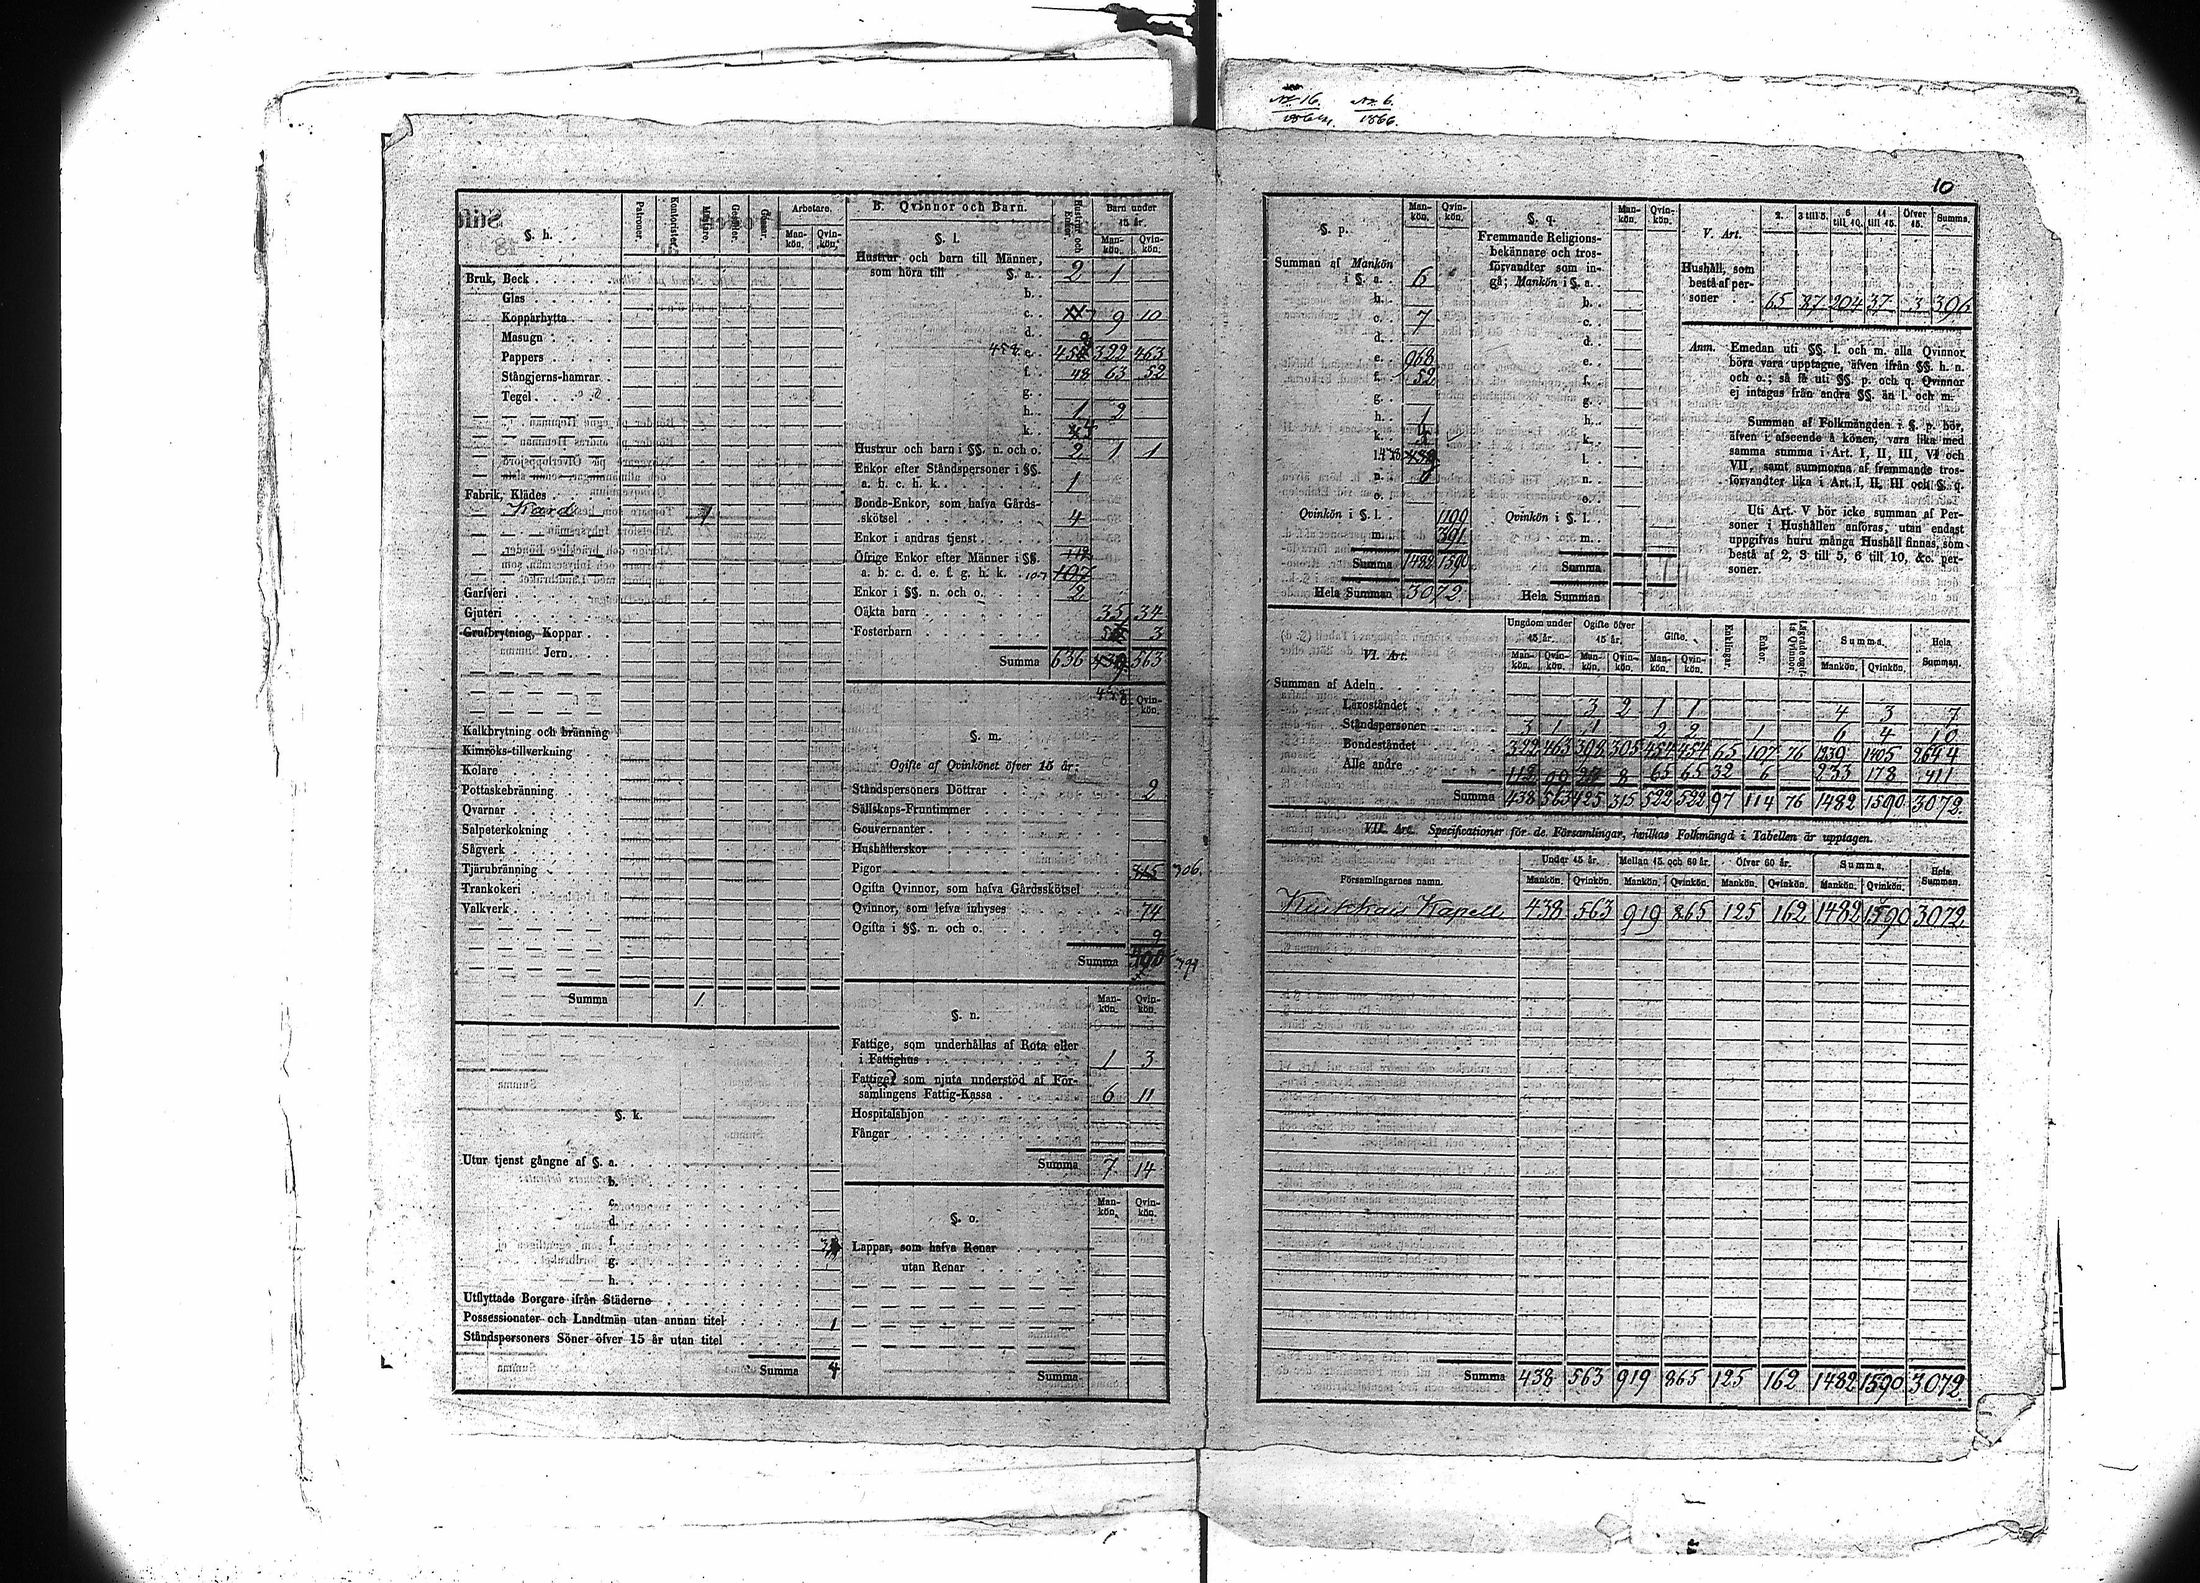 N:o 16. N:o 6.
1866.
10
§. h.
Patroner.
Kontorister.
Mästare.
Gesäller.
Gossar.
Arbetare.
Man-kön. Qvin-kön.
Bruk, Beck
Glas
Kopparhytta
Masugn
Pappers
Stångjerns-hamrar
Tegel
Fabrik, Klädes
Kard 1
Garfveri
Gjuteri
Grufbrytning, Koppar
Jern
Kalkbrytning och bränning
Kimröks-tillverkning
Kolare
Pottaskebränning
Qvarnar
Salpeterkokning
Sågverk
Tjärubränning
Trankokeri
Valkverk
Summa 1
§. k.
Utur tjenst gångne af §. a.
b.
c.
d.
f.
g.
h.
Utflyttade Borgare ifrån Städerne
Possessionater och Landtmän utan annan titel 1
Ståndspersoners Söner öfver 15 år utan titel
Summa 4
B. Qvinnor och Barn.
Hustrur och Enkor.
Barn under 15 år.
Man-kön. Qvin-kön.
§. l.
Hustrur och barn till Männer,
som höra till §. a. 2 1
b.
c. 9 10
d.
e. 322 463
f. 48 63 52
g.
h. 1 2
k.
Hustrur och barn i §§. n. och o. 2 1 1
Enkor efter Ståndspersoner i §§.
a. b. c. h. k. 1
Bonde-Enkor, som hafva Gårds-
skötsel 4
Enkor i andras tjenst
Öfrige Enkor efter Männer i §§.
a. b. c. d. e. f. g. h. k. 107
Enkor i §§. n. och o. 2
Oäkta barn 35 34
Fosterbarn 3
Summa 636 563
438
Qvin-kön.
§. m.
Ogifte af Qvinkönet öfver 15 år:
Ståndspersoners Döttrar 2
Sällskaps-Fruntimmer
Gouvernanter
Hushållerskor
Pigor 306.
Ogifta Qvinnor, som hafva Gårdsskötsel
Qvinnor, som lefva inhyses 74
Ogifta i §§. n. och o. 9
Summa 391
Man-kön. Qvin-kön.
§. n.
Fattige, som underhållas af Rota eller
i Fattighus 1 3
Fattige, som njuta understöd af För-
samlingens Fattig-Kassa 6 11
Hospitalshjon
Fångar
Summa 7 14
Man-kön. Qvin-kön.
§. o.
Lappar, som hafva Renar
utan Renar
Summa
§. p.
Man-kön. Qvin-kön.
Summan af Mankön
i §. a. 6
b.
c. 7
d.
e. 968
f. 52
g.
h. 1
k.
l. 438
n.
o.
Qvinkön i §. l. 1199
m. 391
Summa 1482 1590
Hela Summan 3072
§. q.
Man-kön. Qvin-kön.
Fremmande Religions-
bekännare och tros-
förvandter som in-
gå; Mankön i §. a.
b.
c.
d.
e.
f.
g.
h.
k.
l.
n.
o.
Qvinkön i §. l.
m.
Summa
Hela Summan
V. Art.
2. 3 till 5. 6 till 10. 11 till 15. Öfver 15. Summa.
Hushåll, som
bestå af per-
soner 65 87 204 37 3 396
Anm. Emedan uti §§. l. och m. alla Qvinnor
böra vara upptagne, äfven ifrån §§. h. n.
och o.; så få uti §§. p. och q. Qvinnor
ej intagas från andra §§. än l. och m.
Summan af Folkmängden i §. p. bör,
äfven i afseende å könen, vara lika med
samma summa i Art. I, II, III, VI och
VII, samt summorna af fremmande tros-
förvandter lika i Art. I, II, III och §. q.
Uti Art. V bör icke summan af Per-
soner i Hushållen anföras, utan endast
uppgifvas huru många Hushåll finnas, som
bestå af 2, 3 till 5, 6 till 10, &c. per-
soner.
VI. Art.
Ungdom under 15 år. Ogifte öfver 15 år. Gifte. Enklingar. Enkor. Lägrade ogifta Qvinnor. Summa. Hela Summan.
Man-kön. Qvin-kön. Man-kön. Qvin-kön. Man-kön. Qvin-kön. Mankön. Qvinkön.
Summan af Adeln
Läroståndet 3 2 1 1 4 3 7
Ståndspersoner 3 1 1 2 2 1 6 4 10
Bondeståndet 322 463 308 305 454 454 65 107 76 1405 2644
Alle andre 8 65 65 32 6 233 178 411
Summa 438 563 425 315 522 522 97 114 76 1482 1590 3072
VII. Art. Specificationer för de Församlingar, hvilkas Folkmängd i Tabellen är upptagen.
Församlingarnes namn.
Under 15 år. Mellan 15 och 60 år. Öfver 60 år. Summa. Hela Summan.
Mankön. Qvinkön. Mankön. Qvinkön. Mankön. Qvinkön. Mankön. Qvinkön.
Kapell 438 563 919 865 125 162 1482 1590 3072
Summa 438 563 919 865 125 162 1482 1590 3072